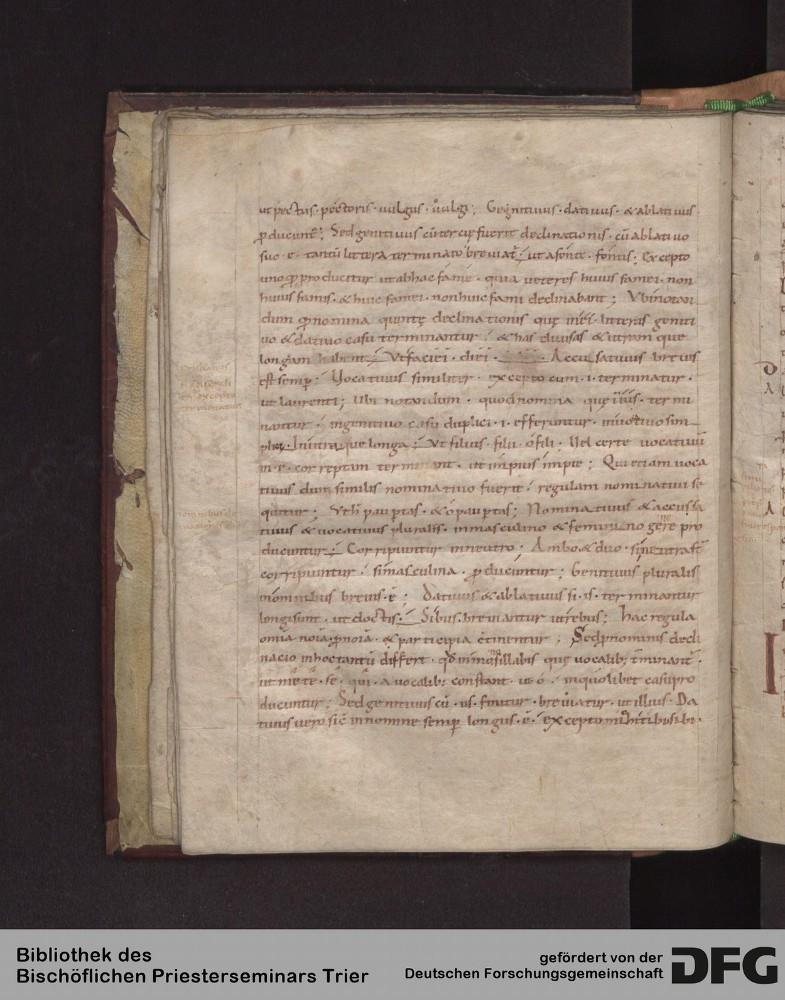 ut pectus· pectoris· uulgus· uulgi; Genitiuus· datiuus· & ablatiuus
ꝓducunt̄; Sed genitiuus cū terciȩ fuerit declinationis· cū ablatiuo
suo· e· tantū littera terminato breuiat̄; ut a fonte· fontis; Excepto
uno qđ producitur ut ab hac fame· quia ueteres huius famei· non
huius famis· & huic famei· non huic fami declinabant; Vbi notan
dum qđ nomina quintȩ declinationis quȩ in ei· litteras geniti
uo & datiuo casu terminantur· & has diuisas & utramque
longam habent; Vt faciei· diei· Accusatiuus breuis
est semp̄; Vocatiuus similiter· excepto cum· i· terminatur·
ut laurenti; Vbi notandum· quod nomina quȩ in ius· termi
nantur· in genitiuo casu duplici· i· efferuntur· in uoc̄tiuo sim
plici· In utraque longa; Vt filius· filii· o fili· Vel certe uocatiuū
in· e· correptam terminant· ut impius impie; Qui etiam uoca
tiuus dum similis nominatiuo fuerit· regulam nominatiui se
quitur; Vt h̄ paupertas· & o paupertas; Nominatiuus & accusa
tiuus & uocatiuus pluralis· in masculino & feminino genere pro
ducuntur; Corripiuntur in neutro; Ambo & duo· si neutra sт̄
corripiuntur· si masculina· ꝓducuntur; Genitiuus pluralis
in omnibus breuis· ē; Datiuus & ablatiuus si· is· terminantur
longi sunt· ut doctis; Si bus· breuiantur ut rebus; Hac regula
om̄ia nōia· ꝓnōia· & participia c̄tinentur; Sed ꝓnominis decli
nacio in hoc tantū differt· qđ in monosillabis quȩ uocalib; t̄minant̄·
ut me· te· se· qui· a uocalib; constant· ut· o· in quolibet casu pro
ducuntur; Sed genitiuus cū· us· finitur· breuiatur· ut illius· Da
tiuus uero sic̄ in nomine semp̄ longus· ē· excepto mihi tibi sibi·
Bibliothek des
Bischöflichen Priesterseminars Trier
gefördert von der
Deutschen Forschungsgemeinschaft
DFG